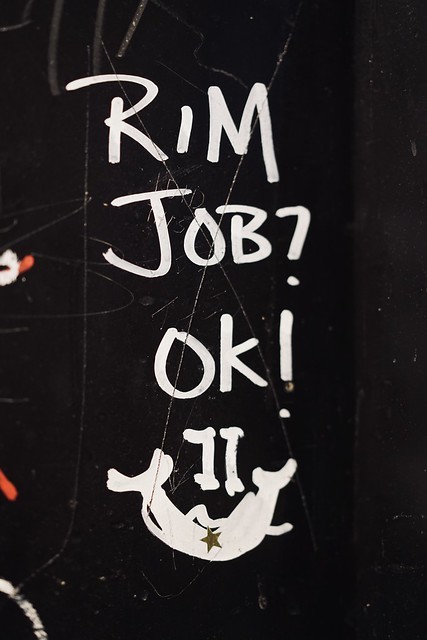 RIM
JOB?
OK!